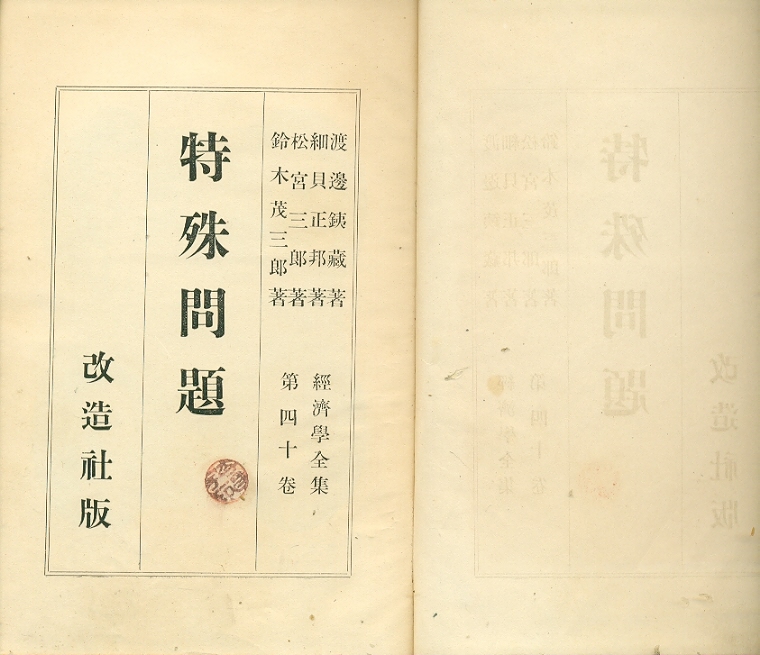 渡邊銕藏著
細貝正邦著
松宮三郎著
鈴木茂三郎著
經濟學全集
第四十卷
特殊問題
改造社版